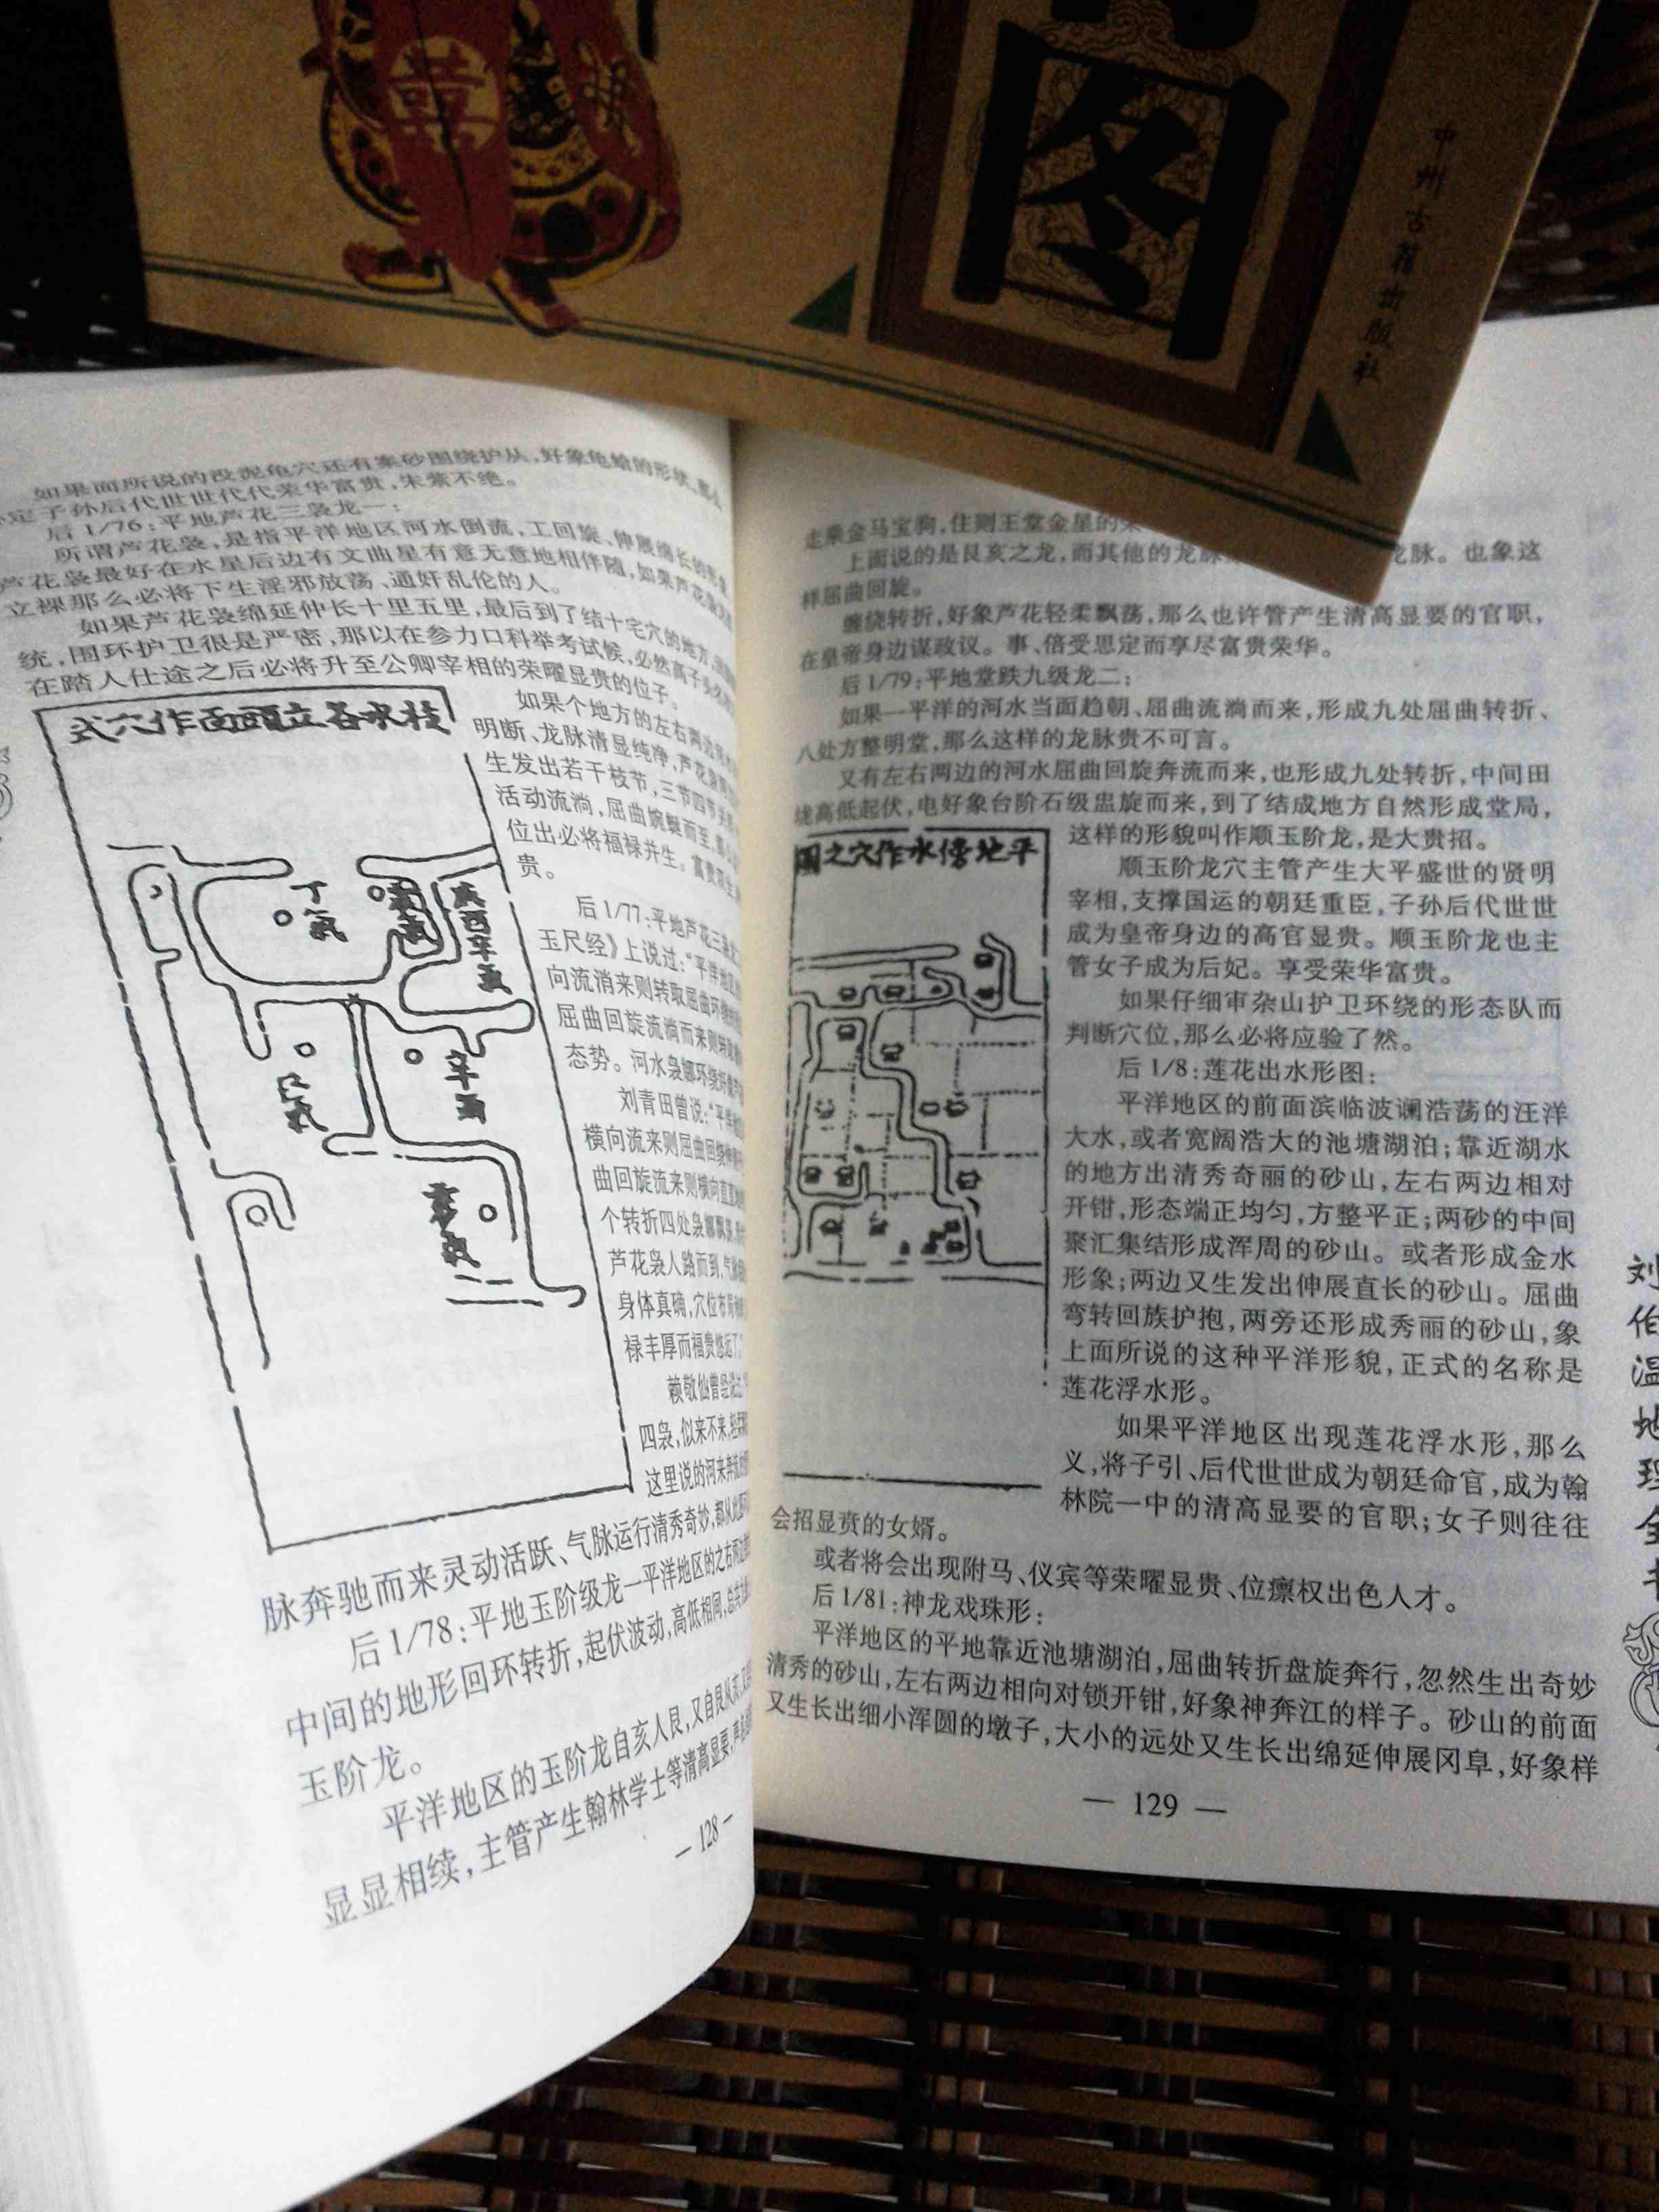 图
中州古籍出版社
如果面所说的没泥龟穴还有案砂围绕护从,好象龟蛤的形状,那么
定子孙后代世世代代荣华富贵,朱紫不绝。
后1/76:平地芦花三袅龙一:
所谓芦花袅,是指平洋地区河水倒流,工回旋、伸展绵长的形象
芦花袅最好在水星后边有文曲星有意无意地相伴随,如果芦花袅
立裸那么必将下生淫邪放荡、通奸乱伦的人。
如果芦花袅绵延伸长十里五里,最后到了结十宅穴的地方,
统,围环护卫很是严密,那以在参力口科举考试候,必然高子头
在踏人仕途之后必将升至公卿宰相的荣曜显贵的位子。
枝水各立面作穴式
如果个地方的左右两边
明断、龙脉清显纯净,芦花袅
生发出若干枝节,三节四节
活动流淌,屈曲婉蜒而至,那么
位出必将福禄并生。富贵
贵。
后1/77:平地芦花三袅
玉尺经》上说过:“平洋地
向流消来则转取屈曲环绕
屈曲回旋流淌而来则转
态势。河水袅娜环绕好
刘青田曾说:“平洋
横向流来则屈曲回绕
曲回旋流来则横向直
个转折四处袅娜飘
芦花袅人路而到,气
身体真确,穴位布局
禄丰厚而福贵悠远了”
赖敬仙曾经说过
四袅,似来不来,轻柔
这里说的河来奔流
脉奔驰而来灵动活跃、气脉运行清秀奇妙,都从此
后1/78:平地玉阶级龙一平洋地区的之右两边
中间的地形回环转折,起伏波动,高低相间,总共
玉阶龙。
平洋地区的玉阶龙自亥人艮,又自艮从亥,
显显相续,主管产生翰林学士等清高显要,
丁氣
庚酉辛氣
巳氣
辛酉
— 128 —
走乘金马宝驹,住则王堂金星的荣
上面说的是艮亥之龙,而其他的龙脉 龙脉。也象这
样屈曲回旋。
缠绕转折,好象芦花轻柔飘荡,那么也许管产生清高显要的官职,
在皇帝身边谋政议。事、倍受思定而享尽富贵荣华。
后1/79:平地堂跌九级龙二:
如果一平洋的河水当面趋朝、屈曲流淌而来,形成九处屈曲转折、
八处方整明堂,那么这样的龙脉贵不可言。
又有左右两边的河水屈曲回旋奔流而来,也形成九处转折,中间田
垅高低起伏,电好象台阶石级盅旋而来,到了结成地方自然形成堂局,
这样的形貌叫作顺玉阶龙,是大贵招。
平地傍水作穴之图
顺玉阶龙穴主管产生大平盛世的贤明
宰相,支撑国运的朝廷重臣,子孙后代世世
成为皇帝身边的高官显贵。顺玉阶龙也主
管女子成为后妃。享受荣华富贵。
如果仔细审杂山护卫环绕的形态队而
判断穴位,那么必将应验了然。
后1/8:莲花出水形图:
平洋地区的前面滨临波谰浩荡的汪洋
大水,或者宽阔浩大的池塘湖泊;靠近湖水
的地方出清秀奇丽的砂山,左右两边相对
开钳,形态端正均匀,方整平正;两砂的中间
聚汇集结形成浑周的砂山。或者形成金水
形象;两边又生发出伸展直长的砂山。屈曲
弯转回族护抱,两旁还形成秀丽的砂山,象
上面所说的这种平洋形貌,正式的名称是
莲花浮水形。
如果平洋地区出现莲花浮水形,那么
义,将子引、后代世世成为朝廷命官,成为翰
林院一中的清高显要的官职;女子则往往
会招显贲的女婿。
或者将会出现附马、仪宾等荣曜显贵、位癝权出色人才。
后1/81:神龙戏珠形:
平洋地区的平地靠近池塘湖泊,屈曲转折盘旋奔行,忽然生出奇妙
清秀的砂山,左右两边相向对锁开钳,好象神奔江的样子。砂山的前面
又生长出细小浑圆的墩子,大小的远处又生长出绵延伸展冈阜,好象样
— 129 —
刘伯温地理全书